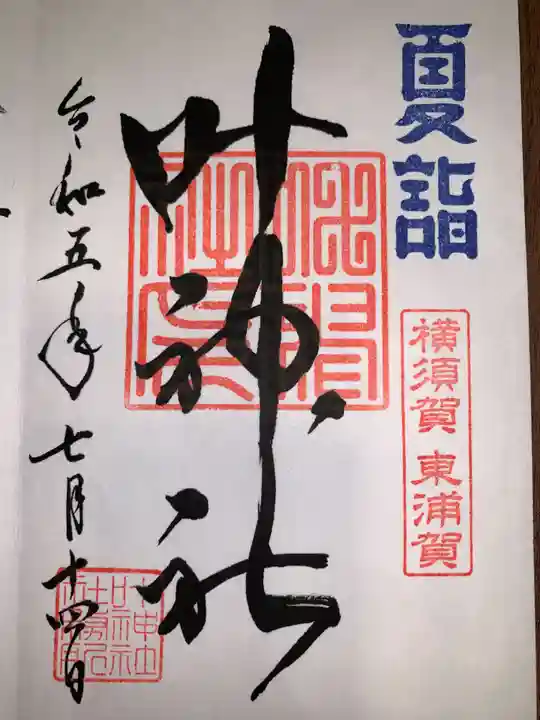 夏詣
横須賀 東浦賀
叶神社
令和五年 七月十四日
叶神社社務所